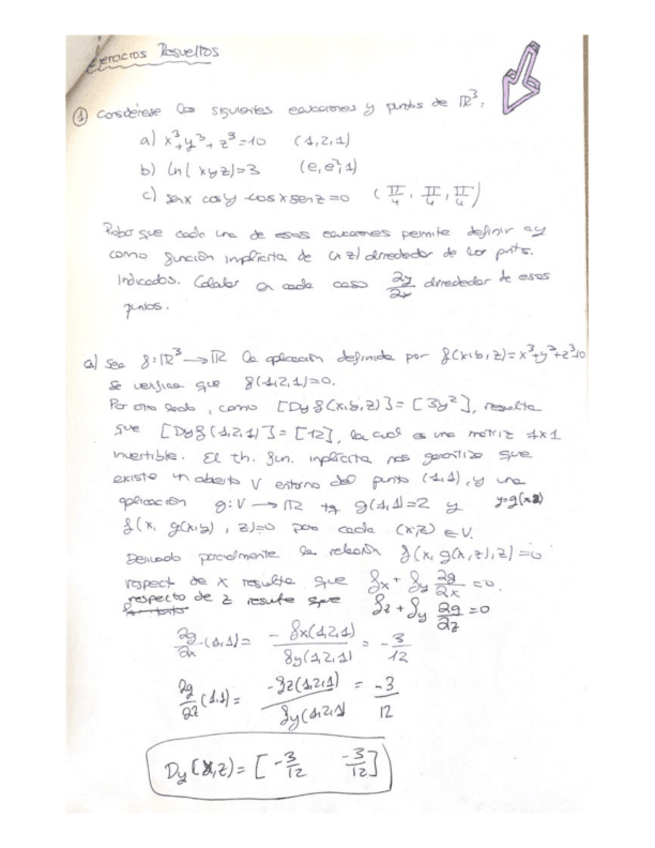 Ejercicios Resueltos
① Considérese las siguientes ecuaciones y puntos de ℝ³,
a) x³+y³+z³=10 (1,2,1)
b) ln(xyz)=3 (e,e²,1)
c) senx cosy - cosx senz=0 (π/4, π/4, π/4)
que cada una de esas ecuaciones permite definir a y
como función implícita de (x,z) alrededor de los ptos.
Indicados. Calcular en cada caso ∂y/∂x alrededor de esos
puntos.
a) Sea f:ℝ³→ℝ la aplicación definida por f(x,y,z)=x³+y³+z³-10
Se verifica que f(1,2,1)=0.
Por otro lado, como [Dyf(x,y,z)]=[3y²], resulta
que [Dyf(1,2,1)]=[12], la cual es una matriz 1x1
invertible. El th. fun. implícita nos garantiza que
existe un abierto V entorno del punto (1,1), y una
aplicación g:V→ℝ tq g(1,1)=2 y y=g(x,z)
f(x, g(x,y), z)=0 para cada (x,z)∈V.
Derivando parcialmente la relación f(x,g(x,z),z)=0
respect de x resulta que fx + fy ∂g/∂x =0.
respecto de z resulta que fz + fy ∂g/∂z =0
∂g/∂x (1,1)= -fx(1,2,1)/fy(1,2,1) = -3/12
∂g/∂z (1,1)= -fz(1,2,1)/fy(1,2,1 = -3/12
Dy(x,z)=[-3/12 -3/12]